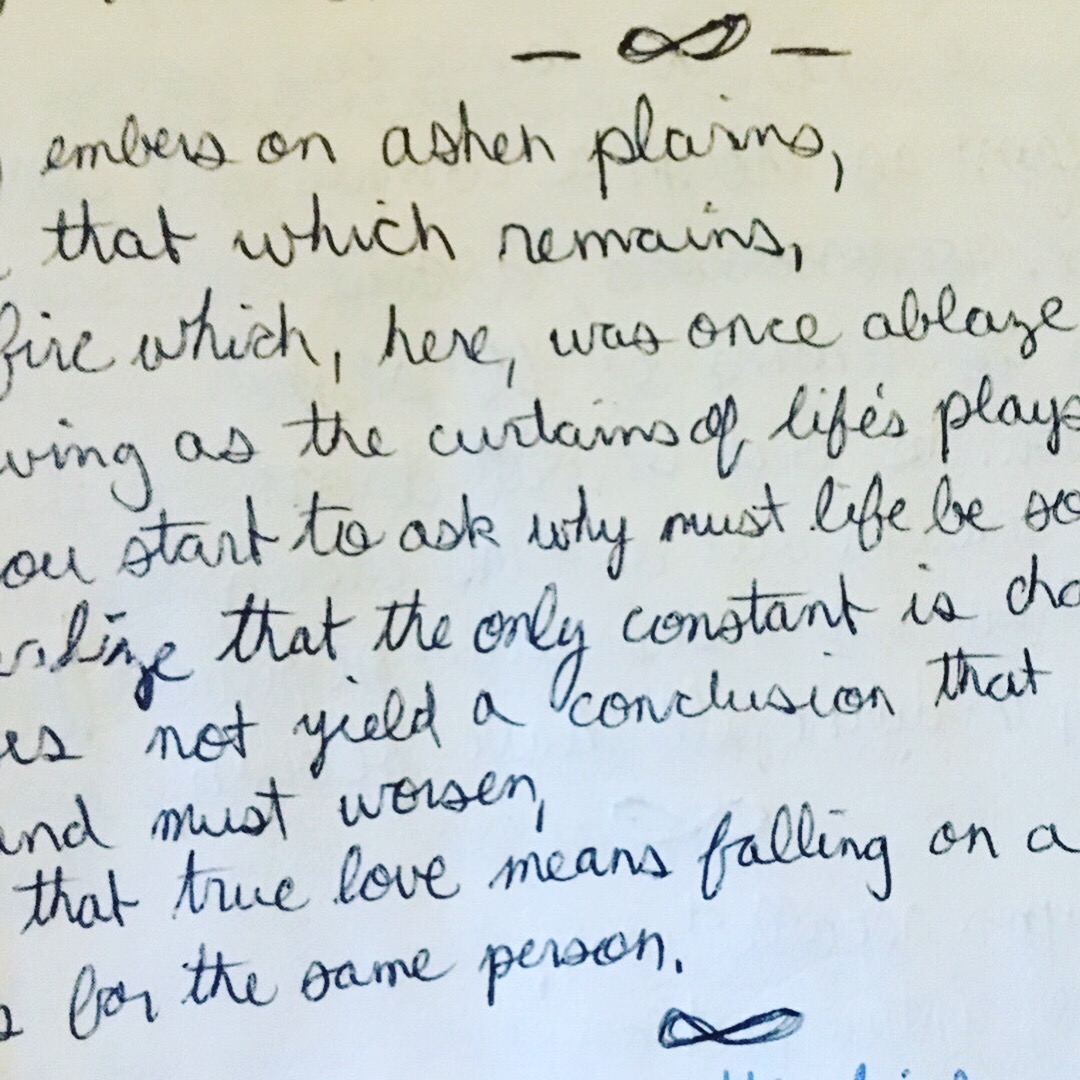 — ∞ —
embers on ashen plains,
that which remains,
fire which, here, was once ablaze
ving as the curtains of life's plays
ou start to ask why must life be so
that the only constant is cha
es not yield a conclusion that
and must worsen,
that true love means falling on a
for the same person.
∞